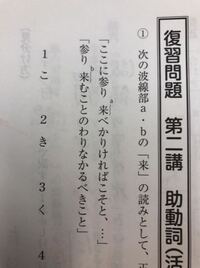 復習問題 第二講 助動詞（活
① 次の波線部a・bの「来」の読みとして、正
「ここに参り来べかりければこそと、…」
a
「参り来むことのわりなかるべきこと」
b
1 こ 2 き 3 く 4